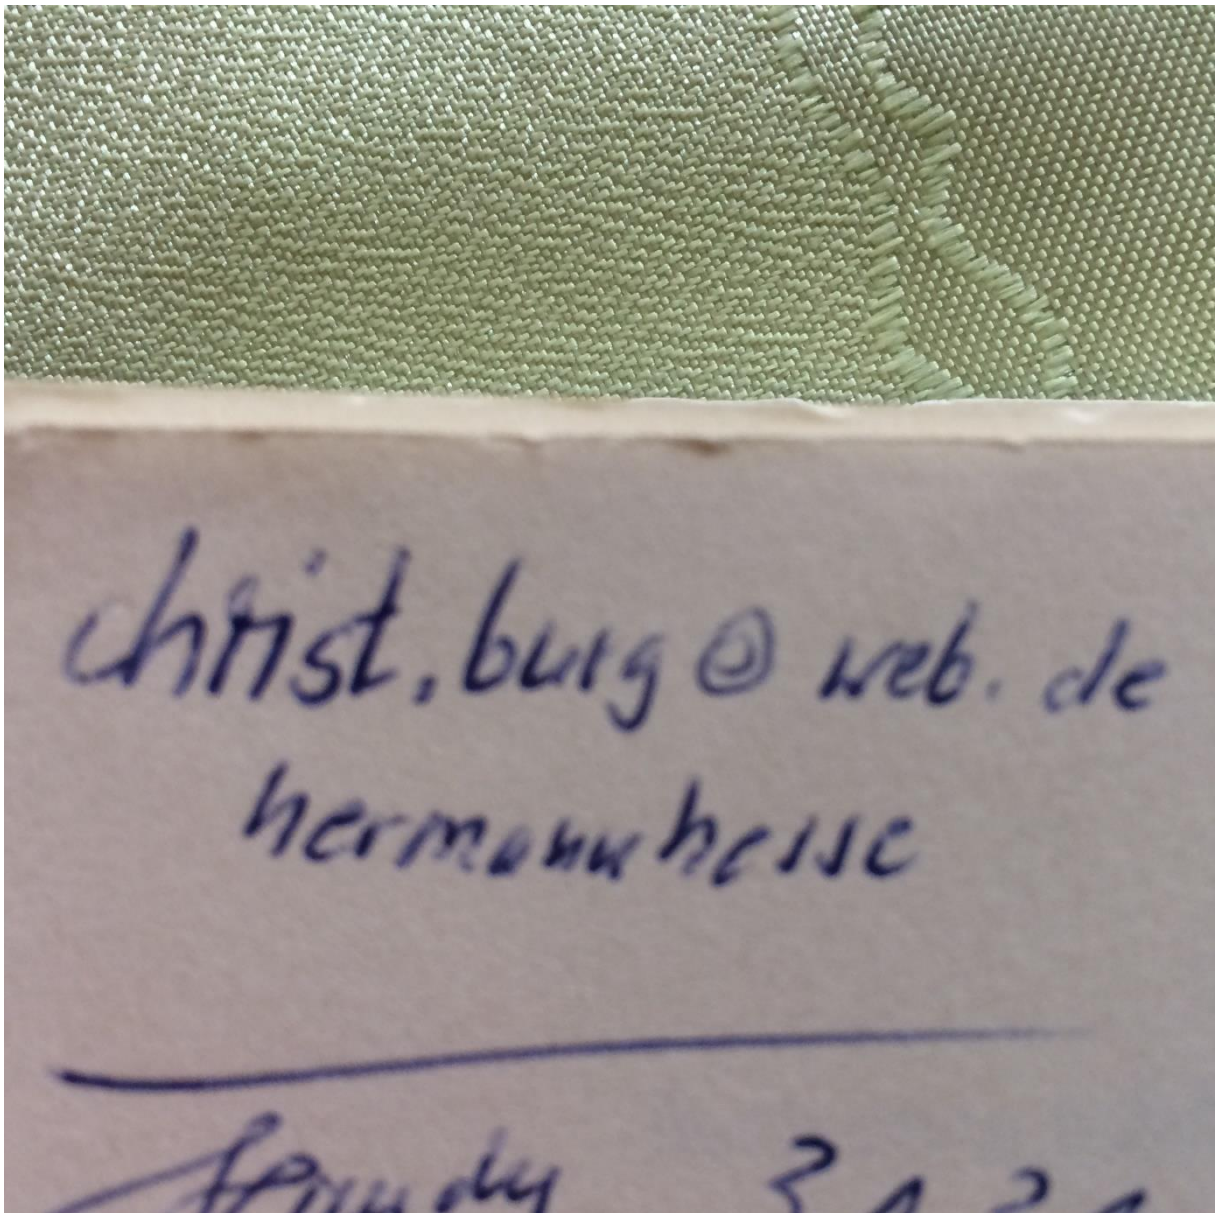 christ.burg@web.de
hermannhesse